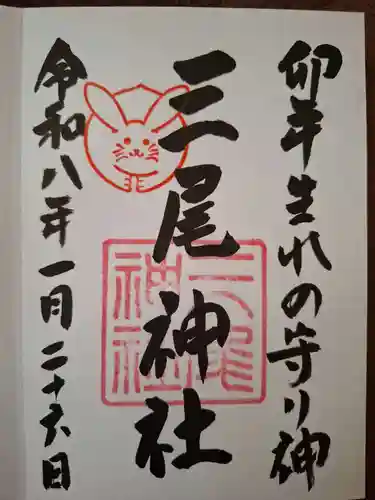 卯年生れの守り神
三尾神社
三尾神社
令和八年一月二十六日